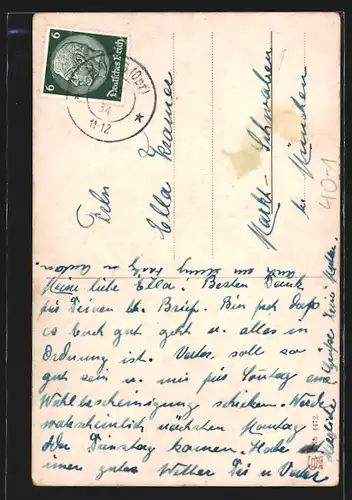 6 6
Deutsches Reich
34
11-12
(OPF)
Frln
Ella Kramer
Markt-Schwaben
b. München
40-1
Meine liebe Ella! Besten Dank
für Deinen lb. Brief. Bin froh daß
es Euch gut geht u. alles in
Ordnung ist. Vater soll so
gut sein u. mir für Sonntag eine
Wahlbescheinigung schicken. Werde
wahrscheinlich nächsten Montag
oder Dienstag kommen. Habe
immer gutes Wetter Du u. Vater
herzliche Grüße
auch an
1472